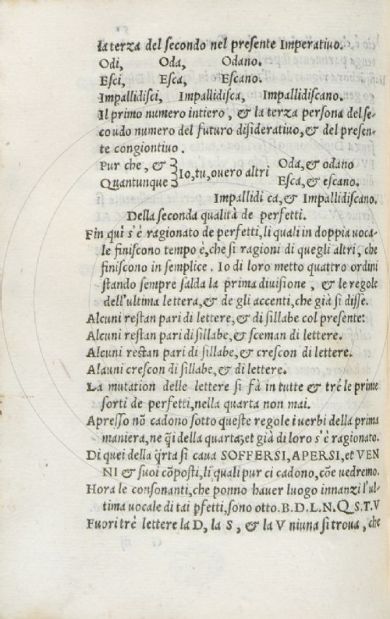 la terza del secondo nel presente Imperativo.
Odi, Oda, Odano.
Esci, Esca, Escano.
Impallidisci, Impallidisca, Impallidiscano.
Il primo numero intiero, & la terza persona del se-
coudo numero del futuro disiderativo, & del presen-
te congiontivo.
Pur che, & Io, tu, overo altri Oda, & odano
Quantunque Esca, & escano.
Impallidi ca, & Impallidiscano.
Della seconda qualità de perfetti.
Fin qui s'è ragionato de perfetti, li quali in doppia voca-
le finiscono tempo è, che si ragioni di quegli altri, che
finiscono in semplice. Io di loro metto quattro ordini
stando sempre salda la prima divisione, & le regole
dell'ultima lettera, & de gli accenti, che già si disse.
Alcuni restan pari di lettere, & di sillabe col presente.
Alcuni restan pari di sillabe, & sceman di lettere.
Alcuni restan pari di sillabe, & crescon di lettere.
Alcuni crescon di sillabe, & di lettere.
La mutation delle lettere si fà in tutte & trè le prime
sorti de perfetti, nella quarta non mai.
Apresso nõ cadono sotto queste regole i verbi della prima
maniera, ne q̃i della quarta; et già di loro s'è ragionato.
Di quei della q̃rta si cava SOFFERSI, APERSI, et VEN
NI & suoi cõposti, li quali pur ci cadono, cõe vedremo.
Hora le consonanti, che ponno haver luogo innanzi l'ul-
tima vocale di tai pfetti, sono otto. B. D. L. N. Q. S. T. V
Fuori trè lettere la D, la S, & la V niuna si trova, che